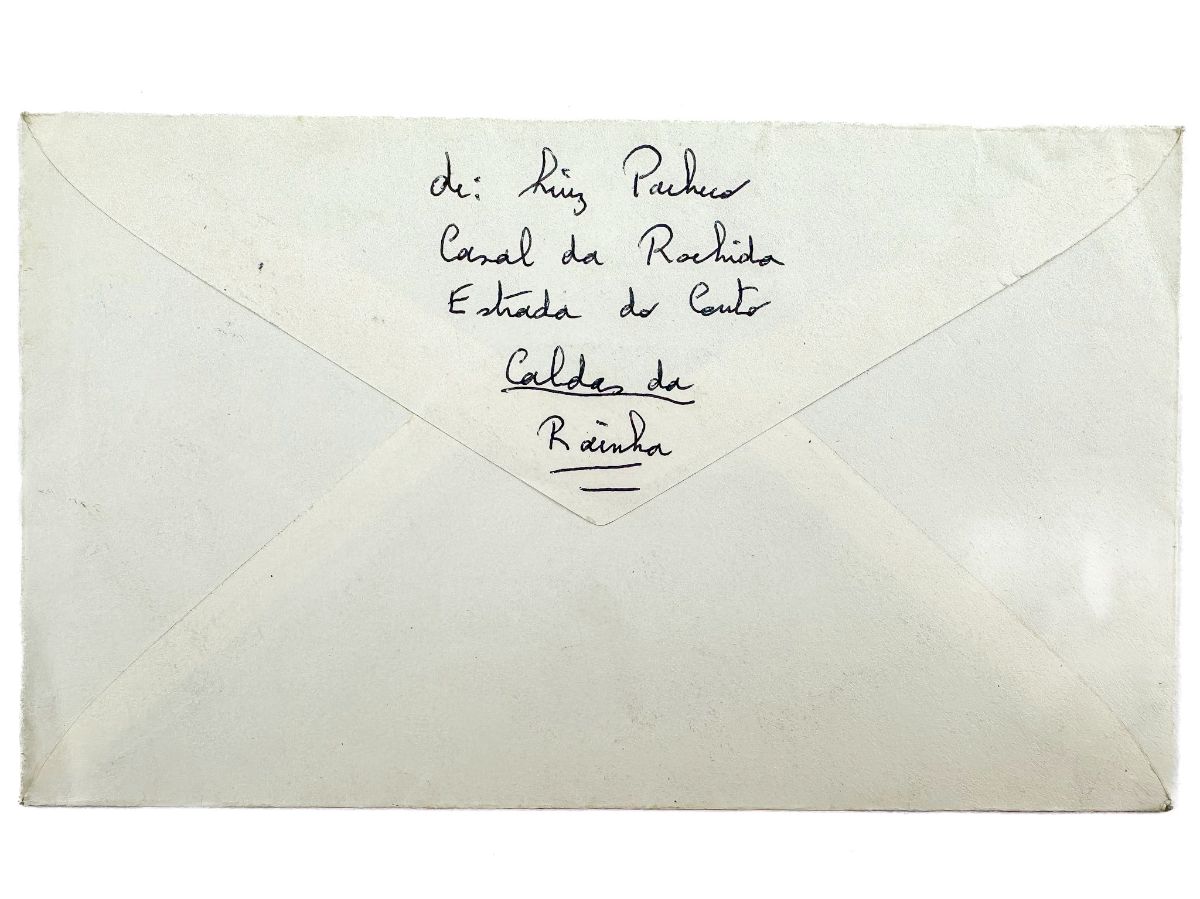 de: Luiz Pacheco
Casal da Rochida
Estrada do Couto
Caldas da
Rainha